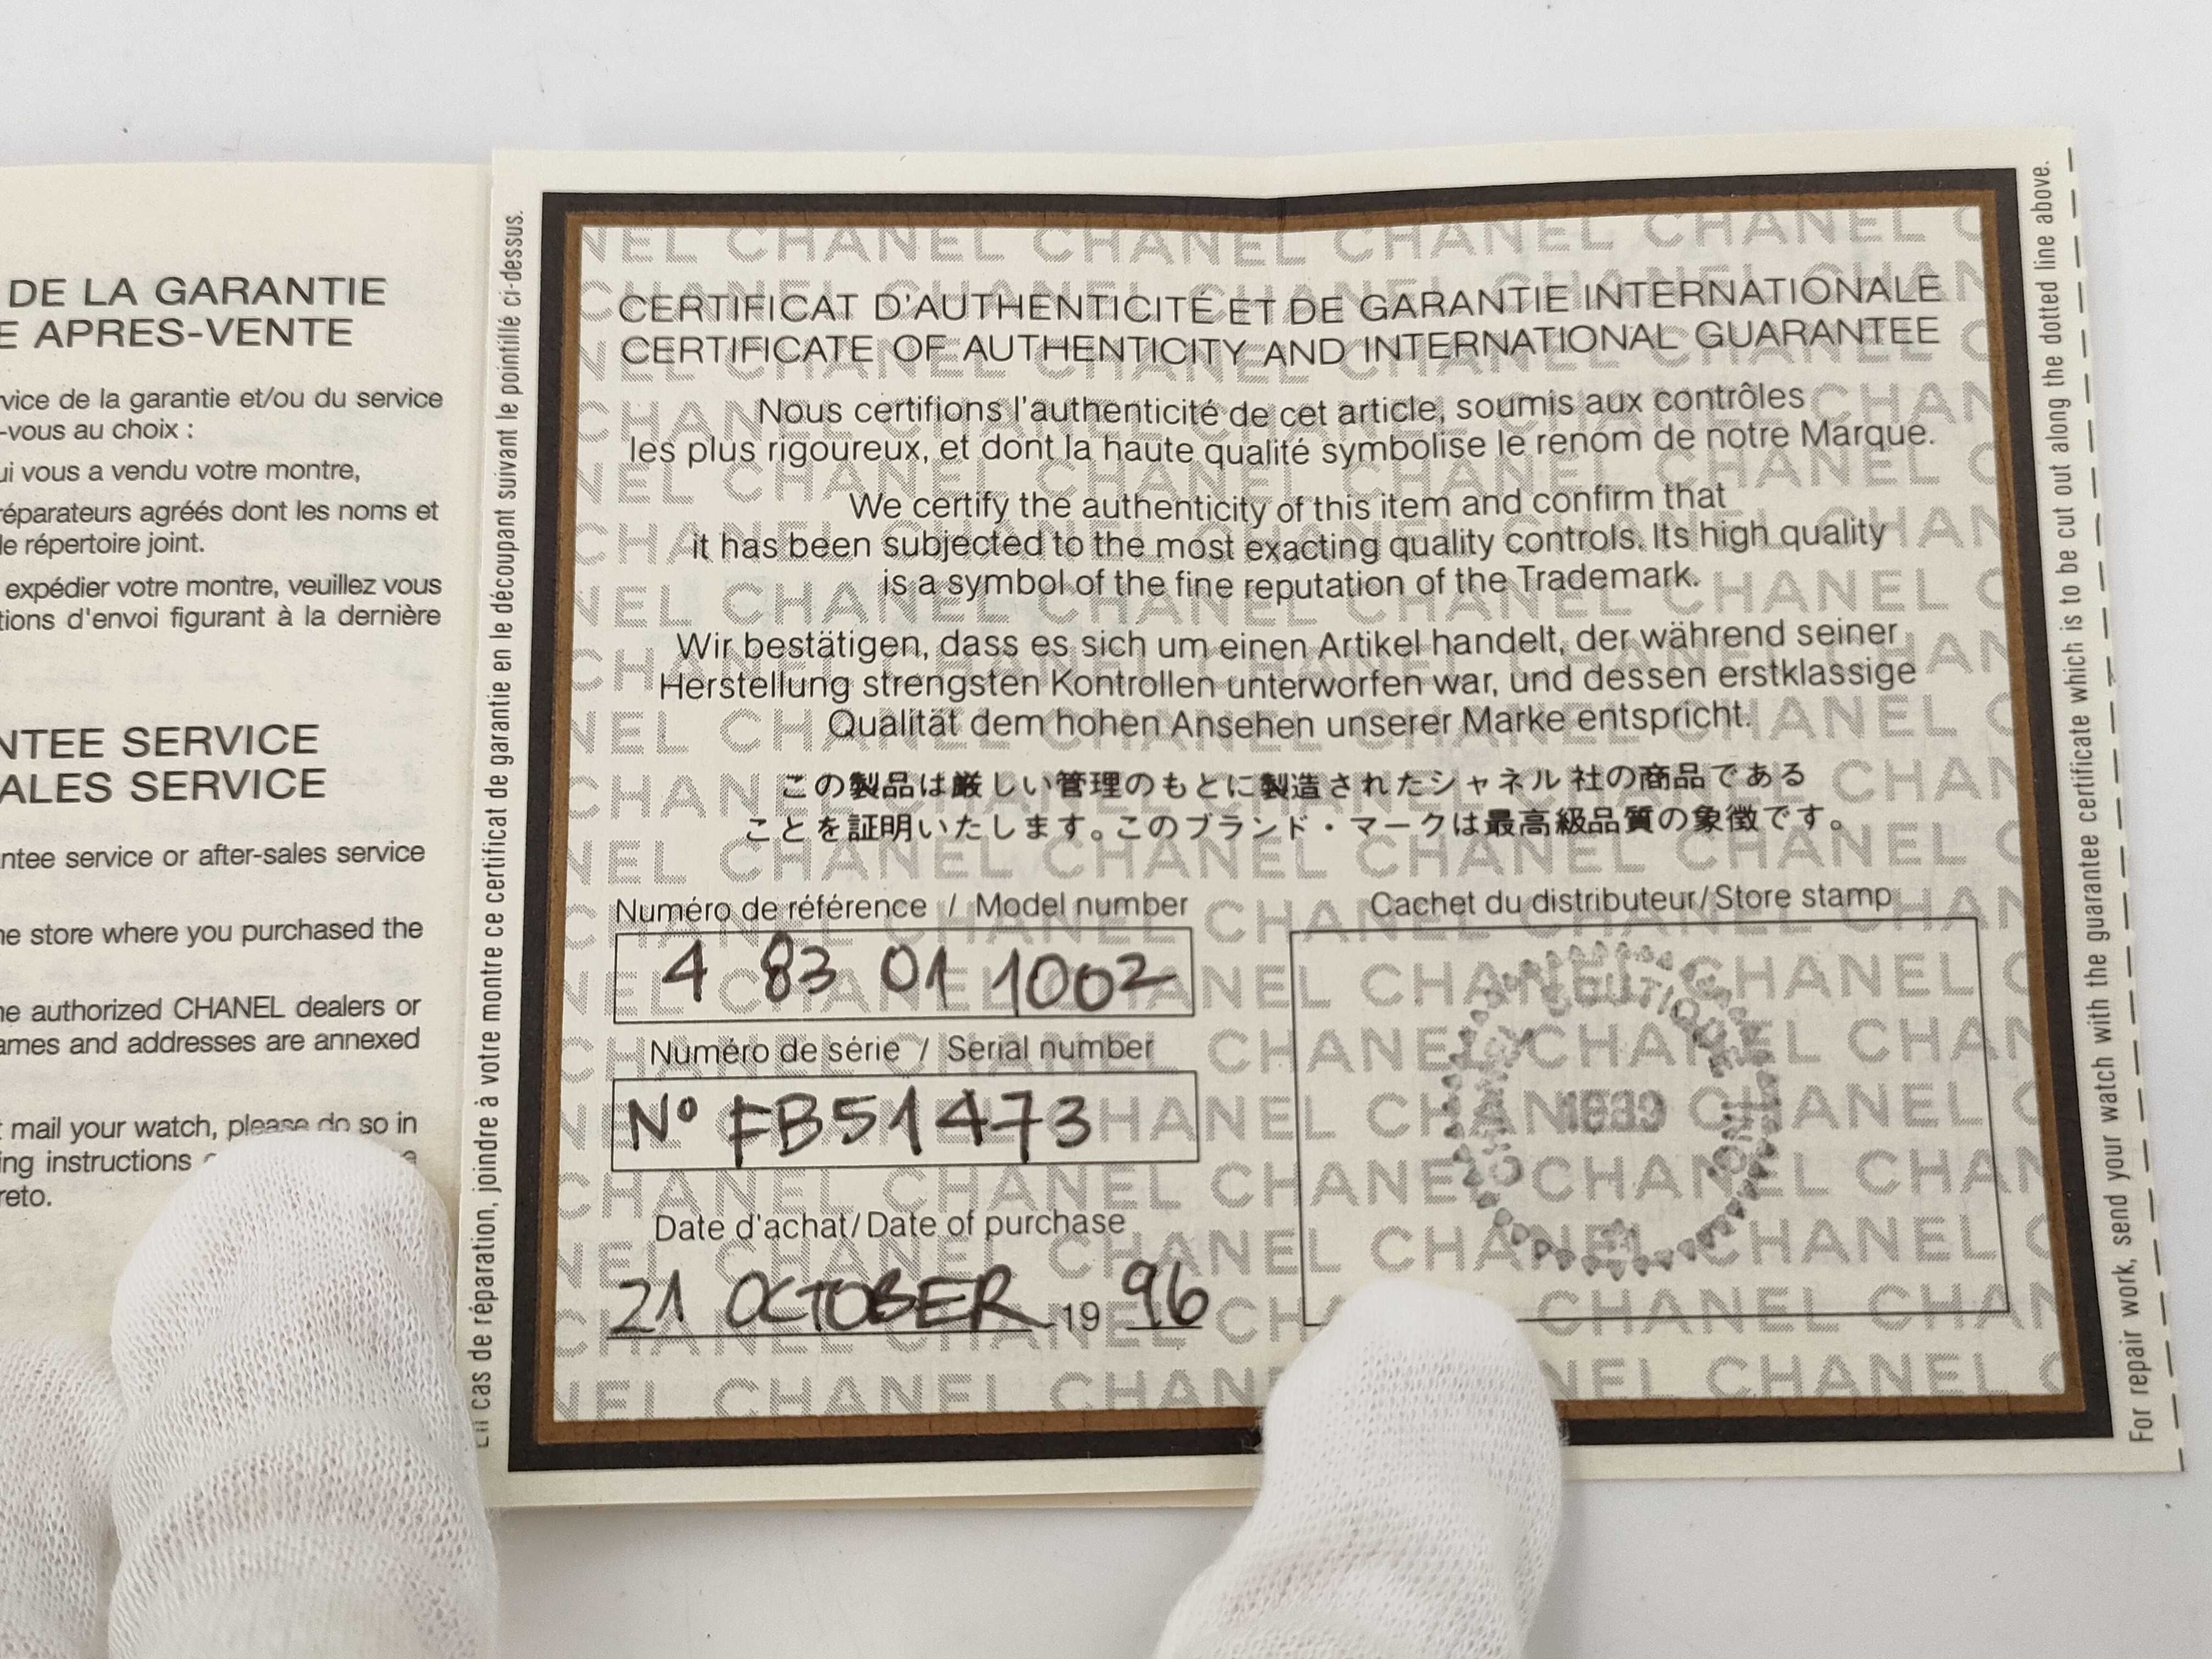 DE LA GARANTIE
E APRES-VENTE
vice de la garantie et/ou du service
-vous au choix :
ui vous a vendu votre montre,
réparateurs agréés dont les noms et
le répertoire joint.
expédier votre montre, veuillez vous
tions d'envoi figurant à la dernière
NTEE SERVICE
ALES SERVICE
ntee service or after-sales service
he store where you purchased the
he authorized CHANEL dealers or
ames and addresses are annexed
t mail your watch, please do so in
ing instructions
reto.
En cas de réparation, joindre à votre montre ce certificat de garantie en le découpant suivant le pointillé ci-dessus.
CERTIFICAT D'AUTHENTICITÉ ET DE GARANTIE INTERNATIONALE
CERTIFICATE OF AUTHENTICITY AND INTERNATIONAL GUARANTEE
Nous certifions l'authenticité de cet article, soumis aux contrôles
les plus rigoureux, et dont la haute qualité symbolise le renom de notre Marque.
We certify the authenticity of this item and confirm that
it has been subjected to the most exacting quality controls. Its high quality
is a symbol of the fine reputation of the Trademark.
Wir bestätigen, dass es sich um einen Artikel handelt, der während seiner
Herstellung strengsten Kontrollen unterworfen war, und dessen erstklassige
Qualität dem hohen Ansehen unserer Marke entspricht.
この製品は厳しい管理のもとに製造されたシャネル社の商品である
ことを証明いたします。このブランド・マークは最高級品質の象徴です。
Numéro de référence / Model number
4 83 01 1002
Numéro de série / Serial number
N° FB51473
Date d'achat/Date of purchase
21 OCTOBER 19 96
Cachet du distributeur/Store stamp
BOUTIQUE
For repair work, send your watch with the guarantee certificate which is to be cut out along the dotted line above.
CHANEL CHANEL CHANEL CHANEL